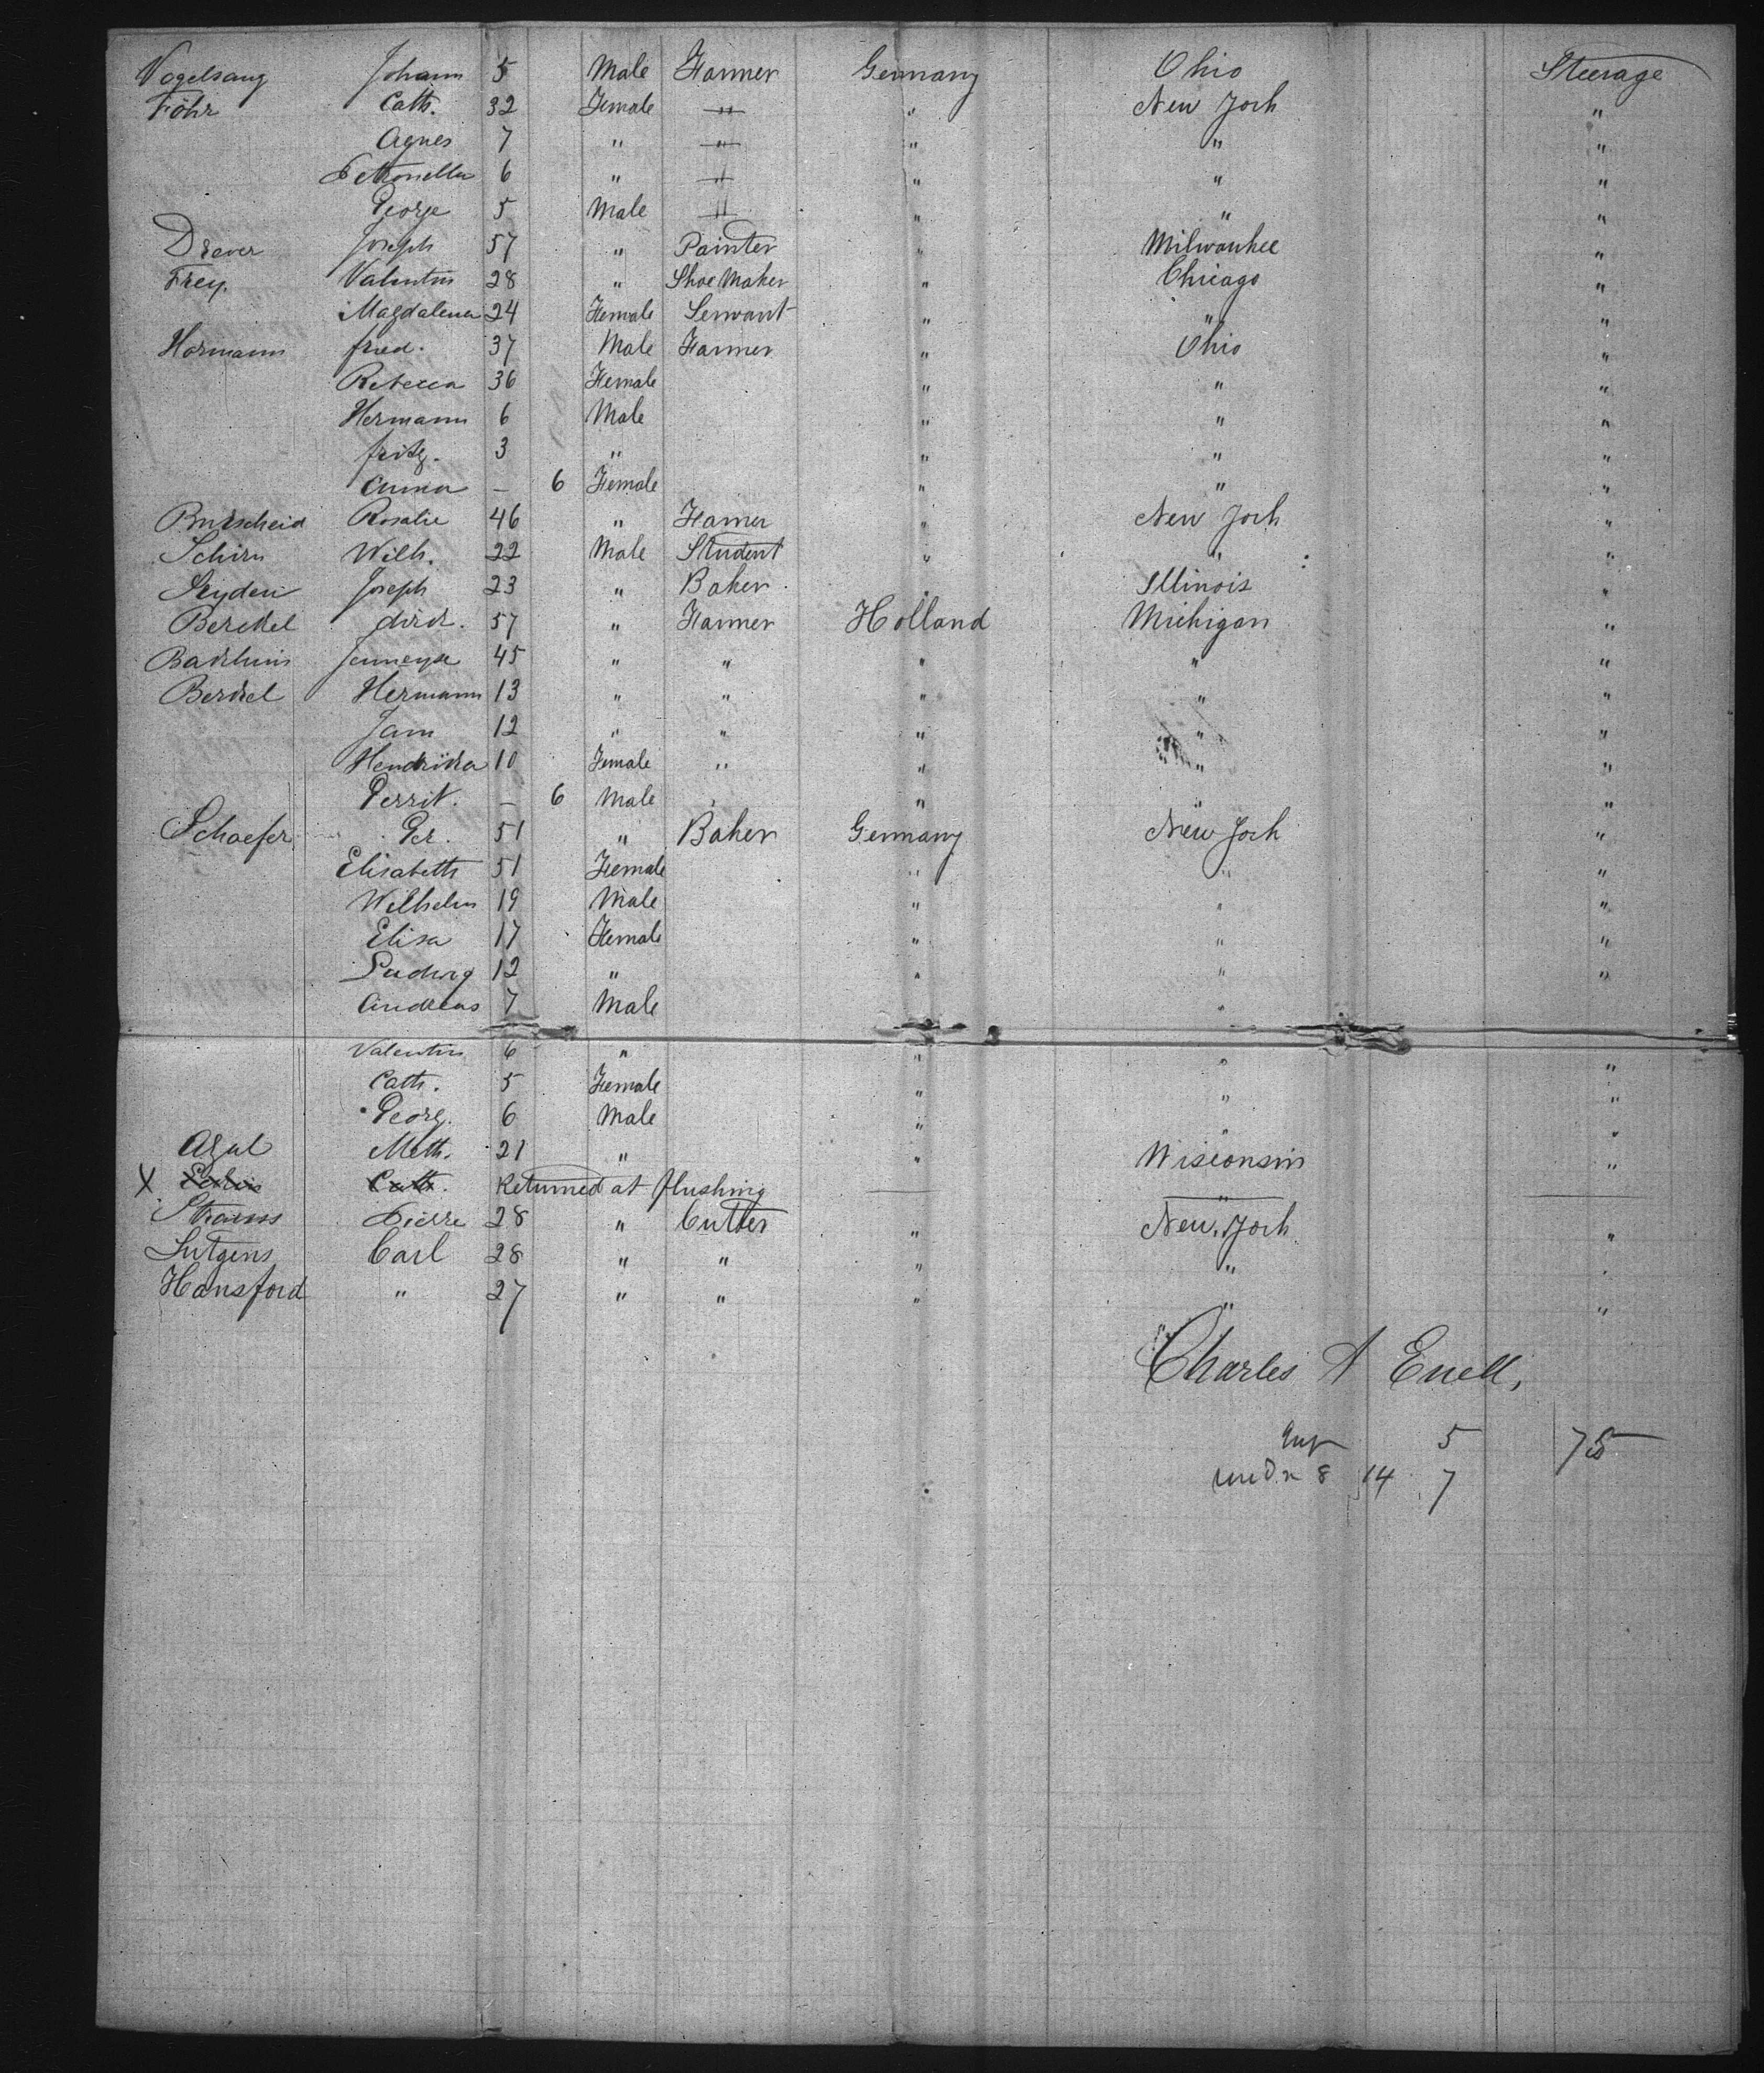 Vogelsang Johann 5 Male Farmer Germany Ohio Steerage
Föhr Cath. 32 Female " " New York "
Agnes 7 " " " " "
Petronella 6 " " " " "
George 5 Male " " " "
Drever Joseph 57 " Painter " Milwaukee "
Frey. Valentin 28 " Shoe Maker " Chicago "
Magdalena 24 Female Servant " " "
Hormann fried. 37 Male Farmer " Ohio "
Rebecca 36 Female " " "
Hermann 6 Male " " "
fritz. 3 " " " "
Anna – 6 Female " " "
Rosalie 46 " Farmer " New York "
Schirn Wilh. 22 Male Student " " "
Joseph 23 " Baker " Illinois "
Berckel dirk. 57 " Farmer Holland Michigan "
45 " " " " "
Berkel Hermann 13 " " " " "
Jam 12 " " " " "
Hendrika 10 Female " " " "
Gerrit. – 6 Male " " " "
Schaefer Pet. 51 " Baker Germany New York "
Elisabeth 51 Female " " "
Wilhelm 19 Male " " "
Elisa 17 Female " " "
Ludwig 12 " " " "
Andreas 7 Male " "
Valentin 6 " " " "
Cath. 5 Female " " "
Georg. 6 Male " " "
Azul Meth. 21 " " Wisconsin "
X Cath. Returned at flushing — " —
Strauss Pierre 28 " Cutter " New York "
Lutgens Carl 28 " " " " "
Hansford " 27 " " " " "
Charles A Enell,
5 75
8 14 7